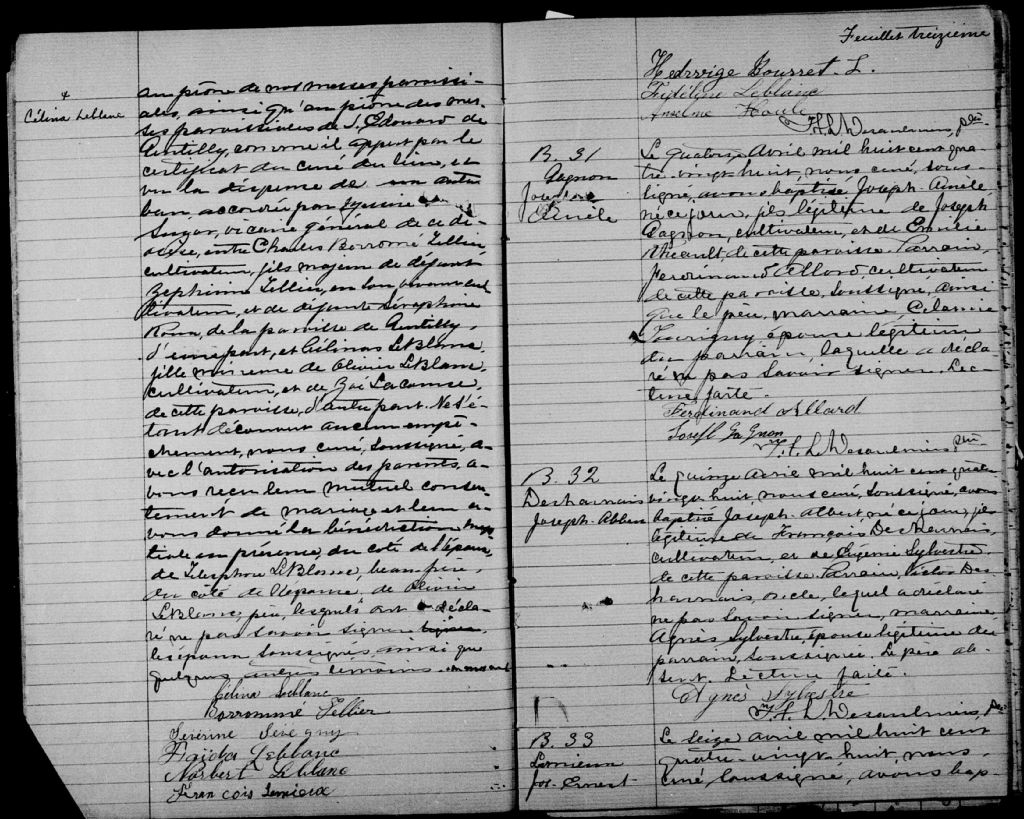 &
Célina Leblanc
au prône de nos messes paroissi-
ales, ainsi qu'au prône des mes-
ses paroissiales de S. Edouard de
Gentilly, comme il appert par le
certificat du curé du lieu, et
vu la dispense de un autre
ban, accordée par
Suzor, vicaire général de ce dio-
cèse, entre Charles Borromé Tellier
cultivateur, fils majeur de défunt
Zephirin Tellier, en son vivant cul
tivateur, et de défunte Séraphine
de la paroisse de Gentilly,
d'une part, et Célina LeBlanc,
fille mineure de Olivier LeBlanc,
cultivateur, et de Zoé Lacourse,
de cette paroisse, d'autre part. Ne s'é-
tant découvert aucun empê-
chement, nous curé, soussigné, a-
vec l'autorisation des parents, a-
vons reçu leur mutuel consen-
tement de mariage et leur a-
vons donné la bénédiction nup
tiale en présence, du coté de l'époux,
de Télesphore LeBlanc, beau-père,
du côté de l'épouse, de Olivier
LeBlanc, père, lesquels ont décla-
ré ne pas savoir signer
les époux soussignés, ainsi que
quelques autres témoins
Célina Leblanc
Borrommé Tellier
Séverine Sévégny
Leblanc
Norbert Leblanc
Francois Lemieux
Feuillet treizième
Hedwige Bourret. L.
Fidéline Leblanc
Anselme Houle
F. L. Desaulniers, ptre
B. 31
Gagnon
Joseph
Ainèle
Le quatorze Avril mil huit cent qua-
tre-vingt huit, nous curé, sous-
signé, avons baptisé Joseph-Ainèle,
né ce jour, fils légitime de Joseph
Gagnon, cultivateur, et de Emilie
de cette paroisse. Parrain,
Ferdinand Allard, cultivateur
de cette paroisse, soussigné, ainsi
que le père, marraine, Célanire
Tourigny, épouse légitime
du parrain, laquelle a décla-
ré ne pas savoir signer. Lec-
ture faite.
Ferdinand Allard
Joseph Gagnon
F. L. Desaulniers, ptre
B. 32
Desharnais
Joseph-Albert
Le quinze Avril mil huit cent quatre
vingt huit, nous curé, soussigné, avons
baptisé Joseph-Albert né ce jour, fils
légitime de François Desharnais,
cultivateur, et de Eugénie Sylvestre,
de cette paroisse. Parrain, Des-
harnais, oncle, lequel a déclaré
ne pas savoir signer, marraine
Agnès Sylvestre, épouse légitime du
parrain, soussignée. Le père ab-
sent. Lecture faite.
Agnès Sylvestre
F. L. Desaulniers, Ptre
B. 33
Lemieux
Jos-Ernest
Le seize avril mil huit cent
quatre-vingt-huit, nous
curé, soussigné, avons bap-